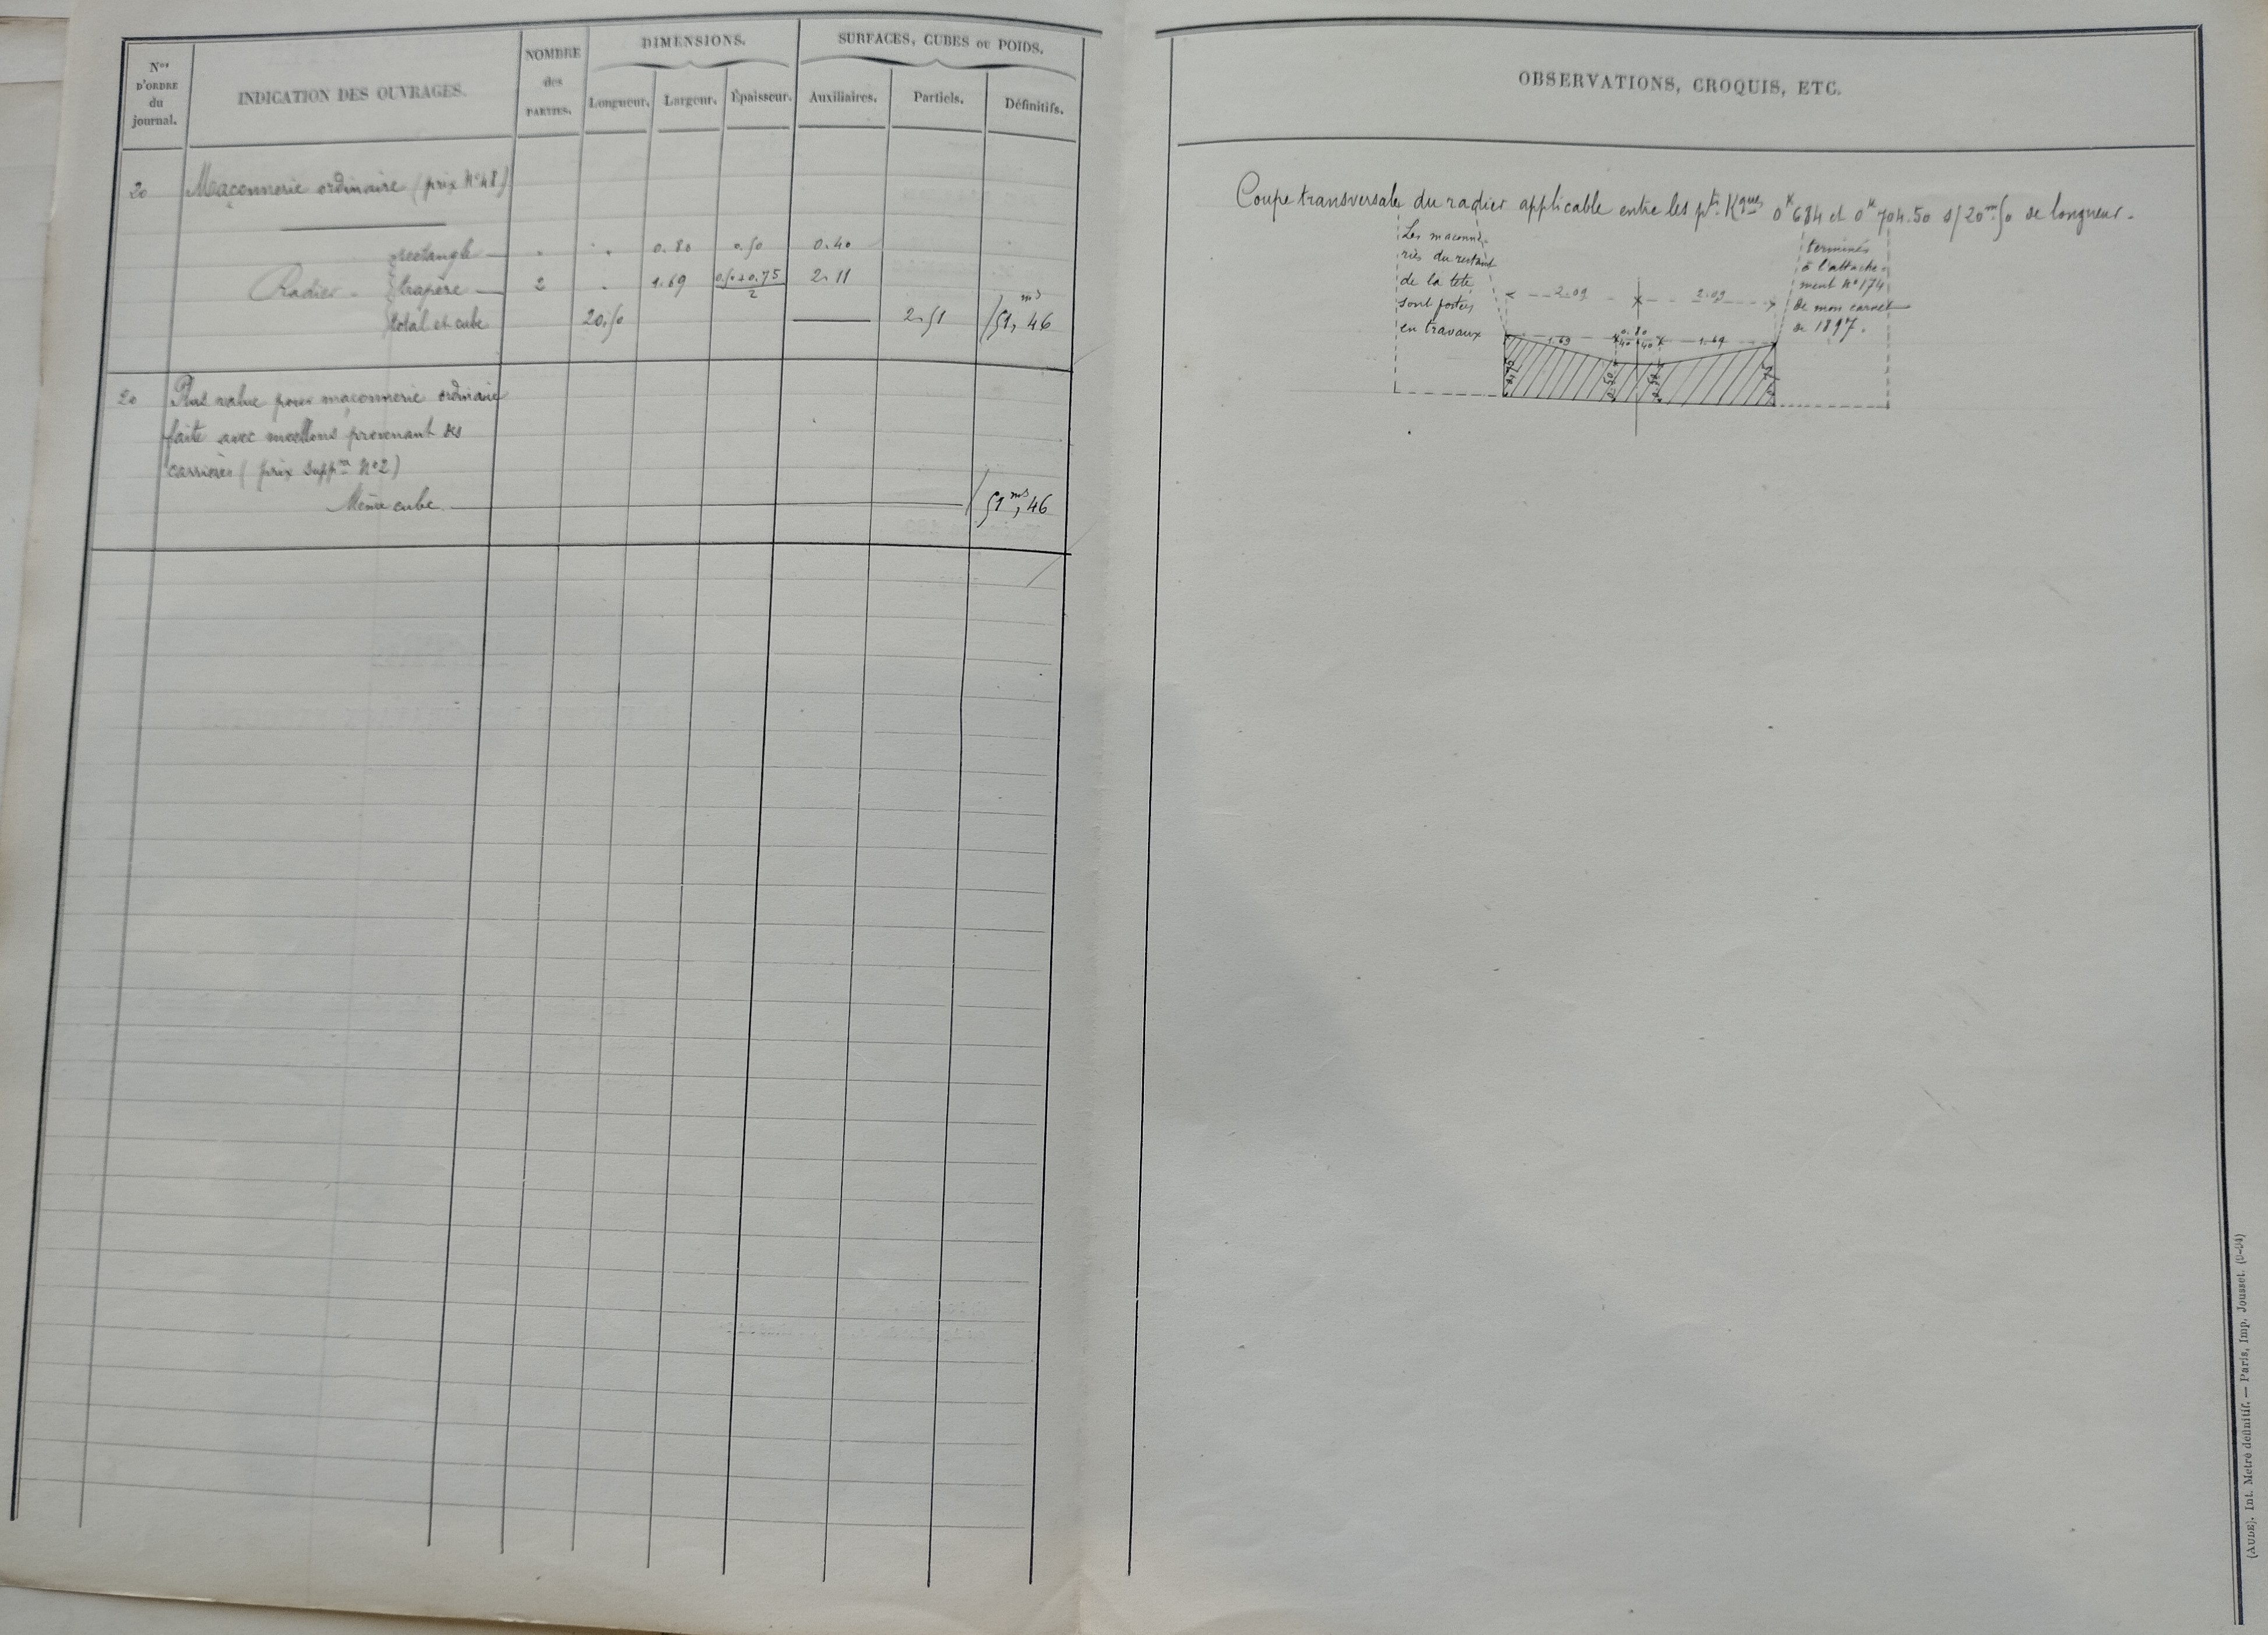 Nos D'ORDRE du journal.
INDICATION DES OUVRAGES.
NOMBRE des PARTIES.
DIMENSIONS.
Longueur. Largeur. Épaisseur.
SURFACES, CUBES ou POIDS.
Auxiliaires. Partiels. Définitifs.
20 Maçonnerie ordinaire (prix N° 48)
rectangle 0.80 0.50 0.40
Radier trapèze 2 1.69 0.50+0.75/2 2.11
total et cube 20.50 2.51 51,46 m3
20 Plus value pour maçonnerie ordinaire
faite avec moellons provenant des
carrières (prix suppre N°2)
Même cube 51 m3,46
OBSERVATIONS, CROQUIS, ETC.
Coupe transversale du radier applicable entre les pts Kques 0k684 et 0k704.50 s/ 20m.50 de longueur.
Les maçonne-
ries du restant
de la tête
sont portées
en travaux
terminés
à l'attache-
ment N° 174
de mon carnet
de 1897.
2.09 2.09
1.69 0.80 1.69
40 40
0.75 0.50 0.50 0.75
(AUDE). Int. Métré définitif. — Paris, Imp. Jousset. (9-94)